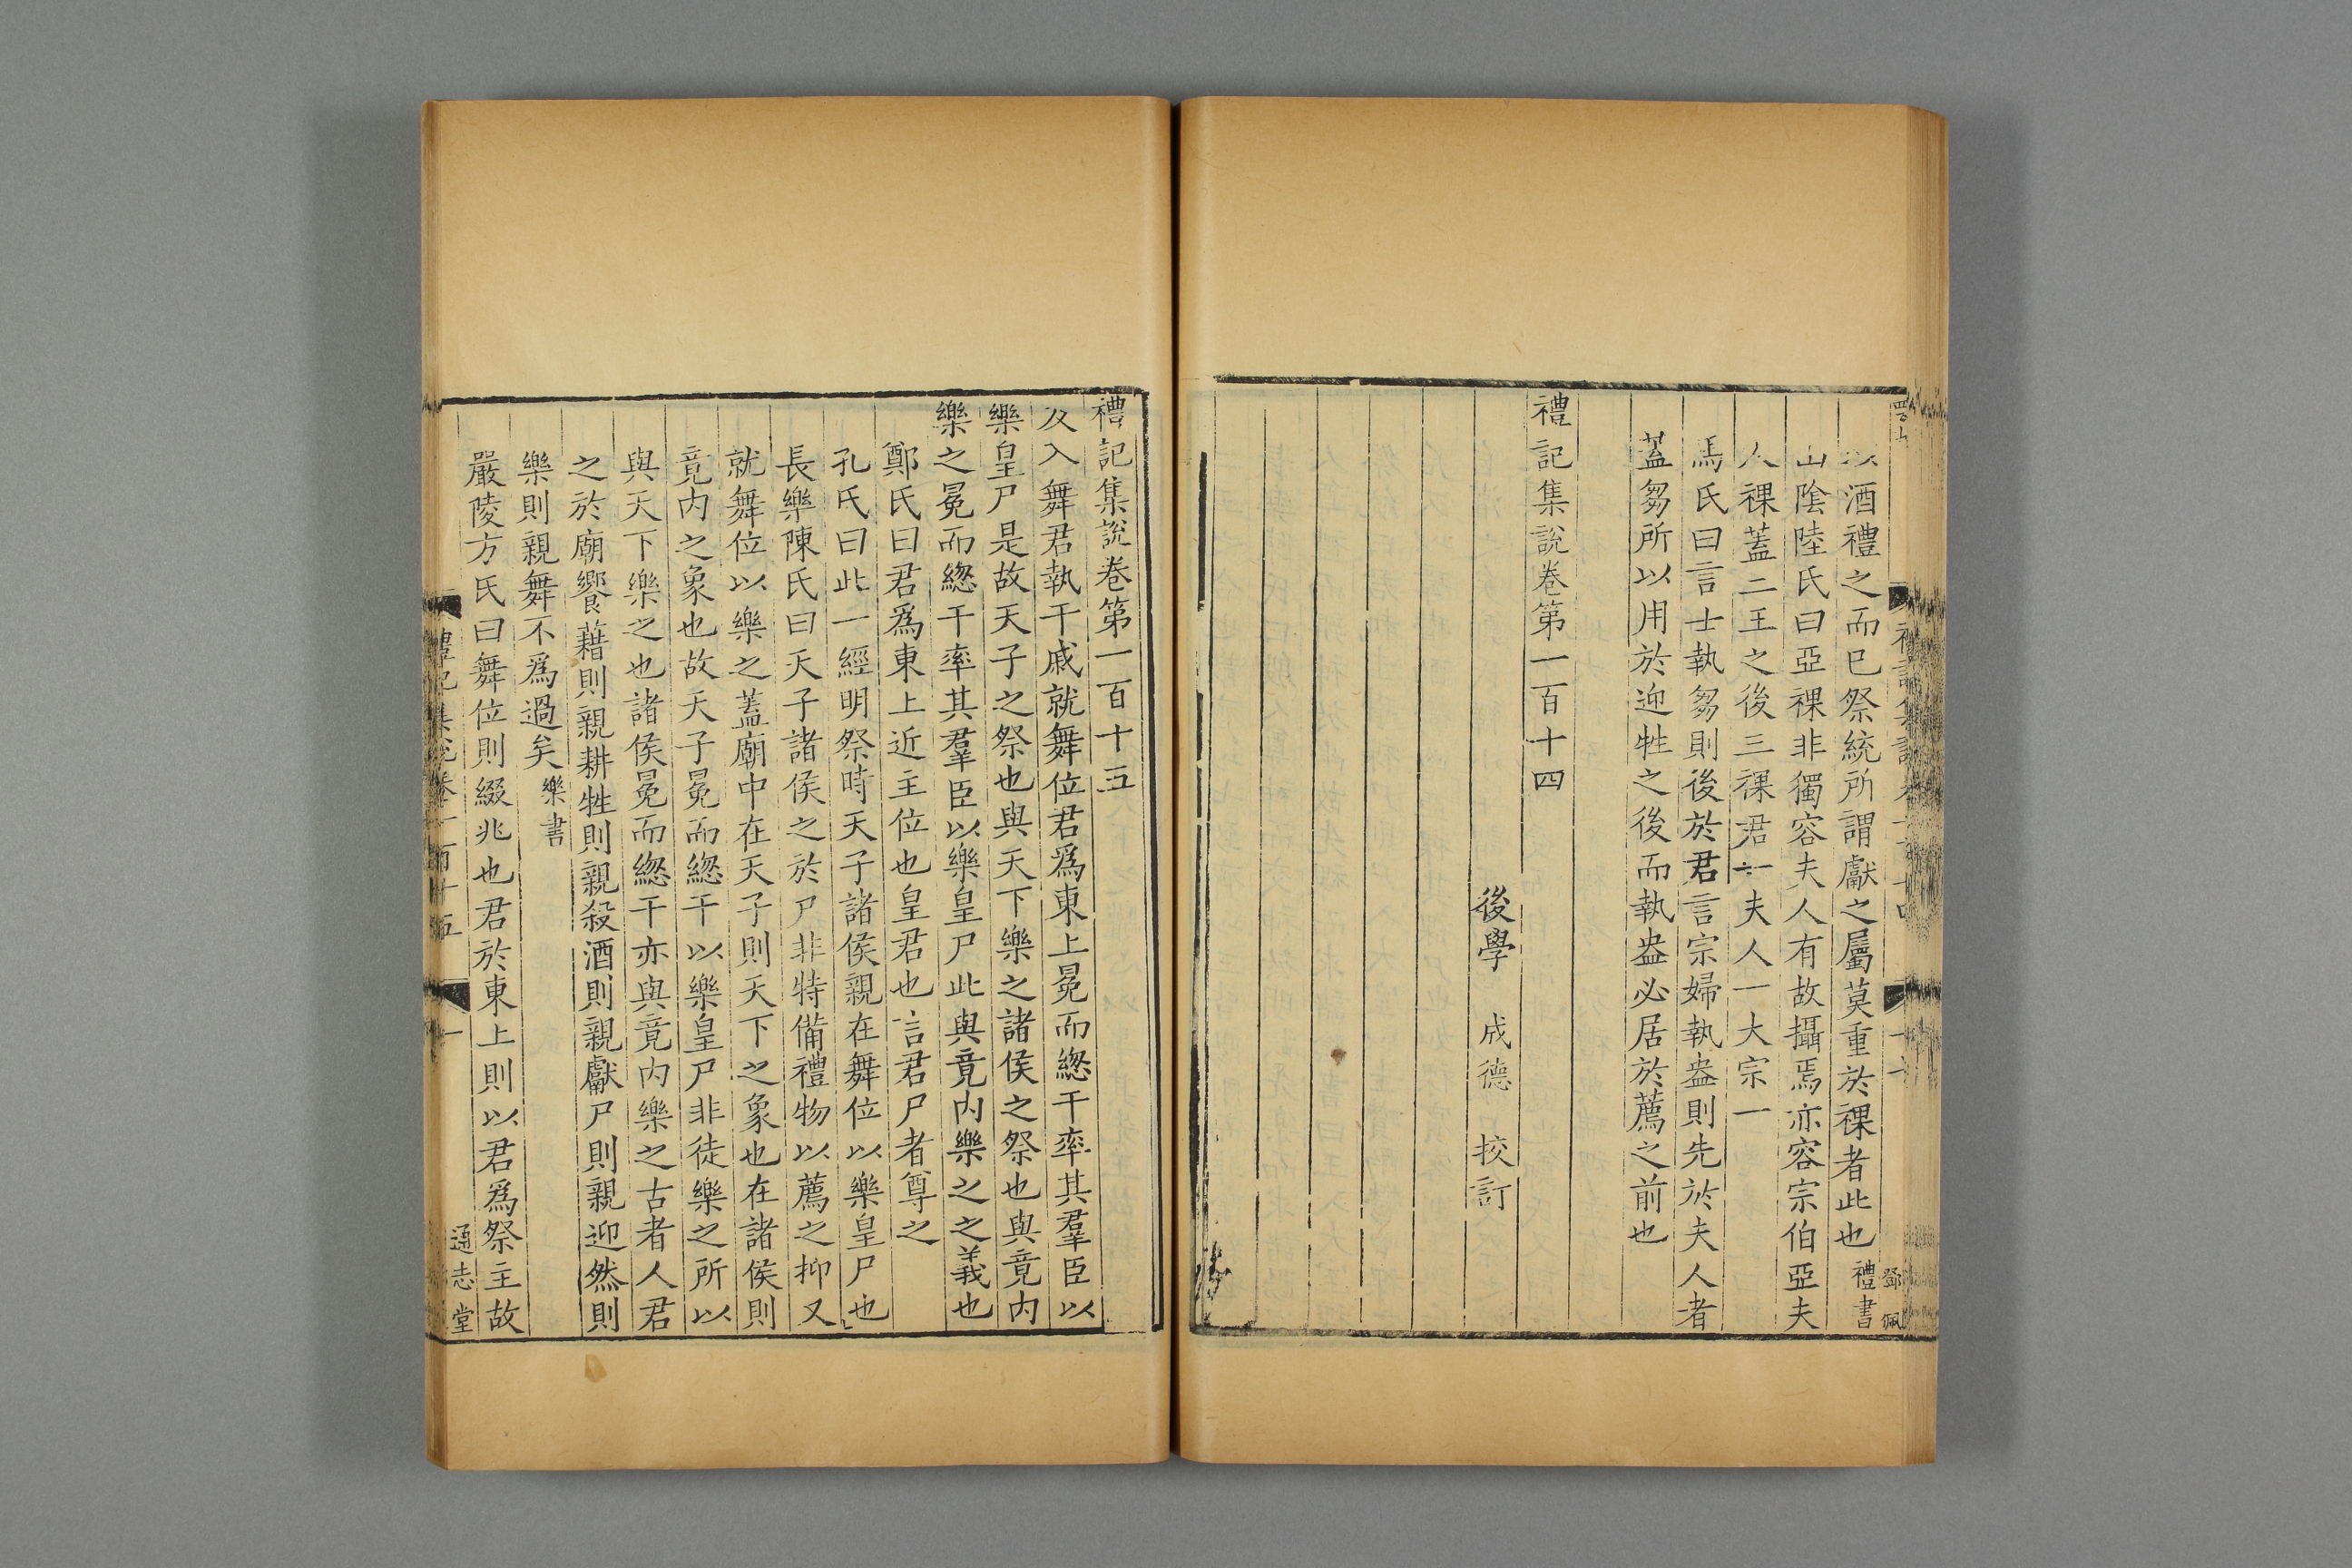 以酒禮之而巳祭統所謂獻之屬莫重於祼者此也禮書
山隂陸氏曰亞祼非獨容夫人有故攝焉亦容宗伯亞夫
人祼蓋二王之後三祼君一夫人一大宗一
馬氏曰言士執芻則後於君言宗婦執盎則先於夫人者
蓋芻所以用於迎牲之後而執盎必居於薦之前也
禮記集說卷第一百十四
後學 成德 挍訂
鄧佩
禮記集說卷第一百十五
及入舞君執干戚就舞位君爲東上冕而緫干率其羣臣以
樂皇尸是故天子之祭也與天下樂之諸侯之祭也與竟内
樂之冕而緫干率其羣臣以樂皇尸此與竟内樂之之義也
鄭氏曰君爲東上近主位也皇君也言君尸者尊之
孔氏曰此一經明祭時天子諸侯親在舞位以樂皇尸也
長樂陳氏曰天子諸侯之於尸非特備禮物以薦之抑又
就舞位以樂之蓋廟中在天子則天下之象也在諸侯則
竟内之象也故天子冕而緫干以樂皇尸非徒樂之所以
與天下樂之也諸侯冕而緫干亦與竟内樂之古者人君
之於廟饗藉則親耕牲則親殺酒則親獻尸則親迎然則
樂則親舞不爲過矣樂書
嚴陵方氏曰舞位則綴兆也君於東上則以君爲祭主故
禮記集說卷一百十五
一
通志堂